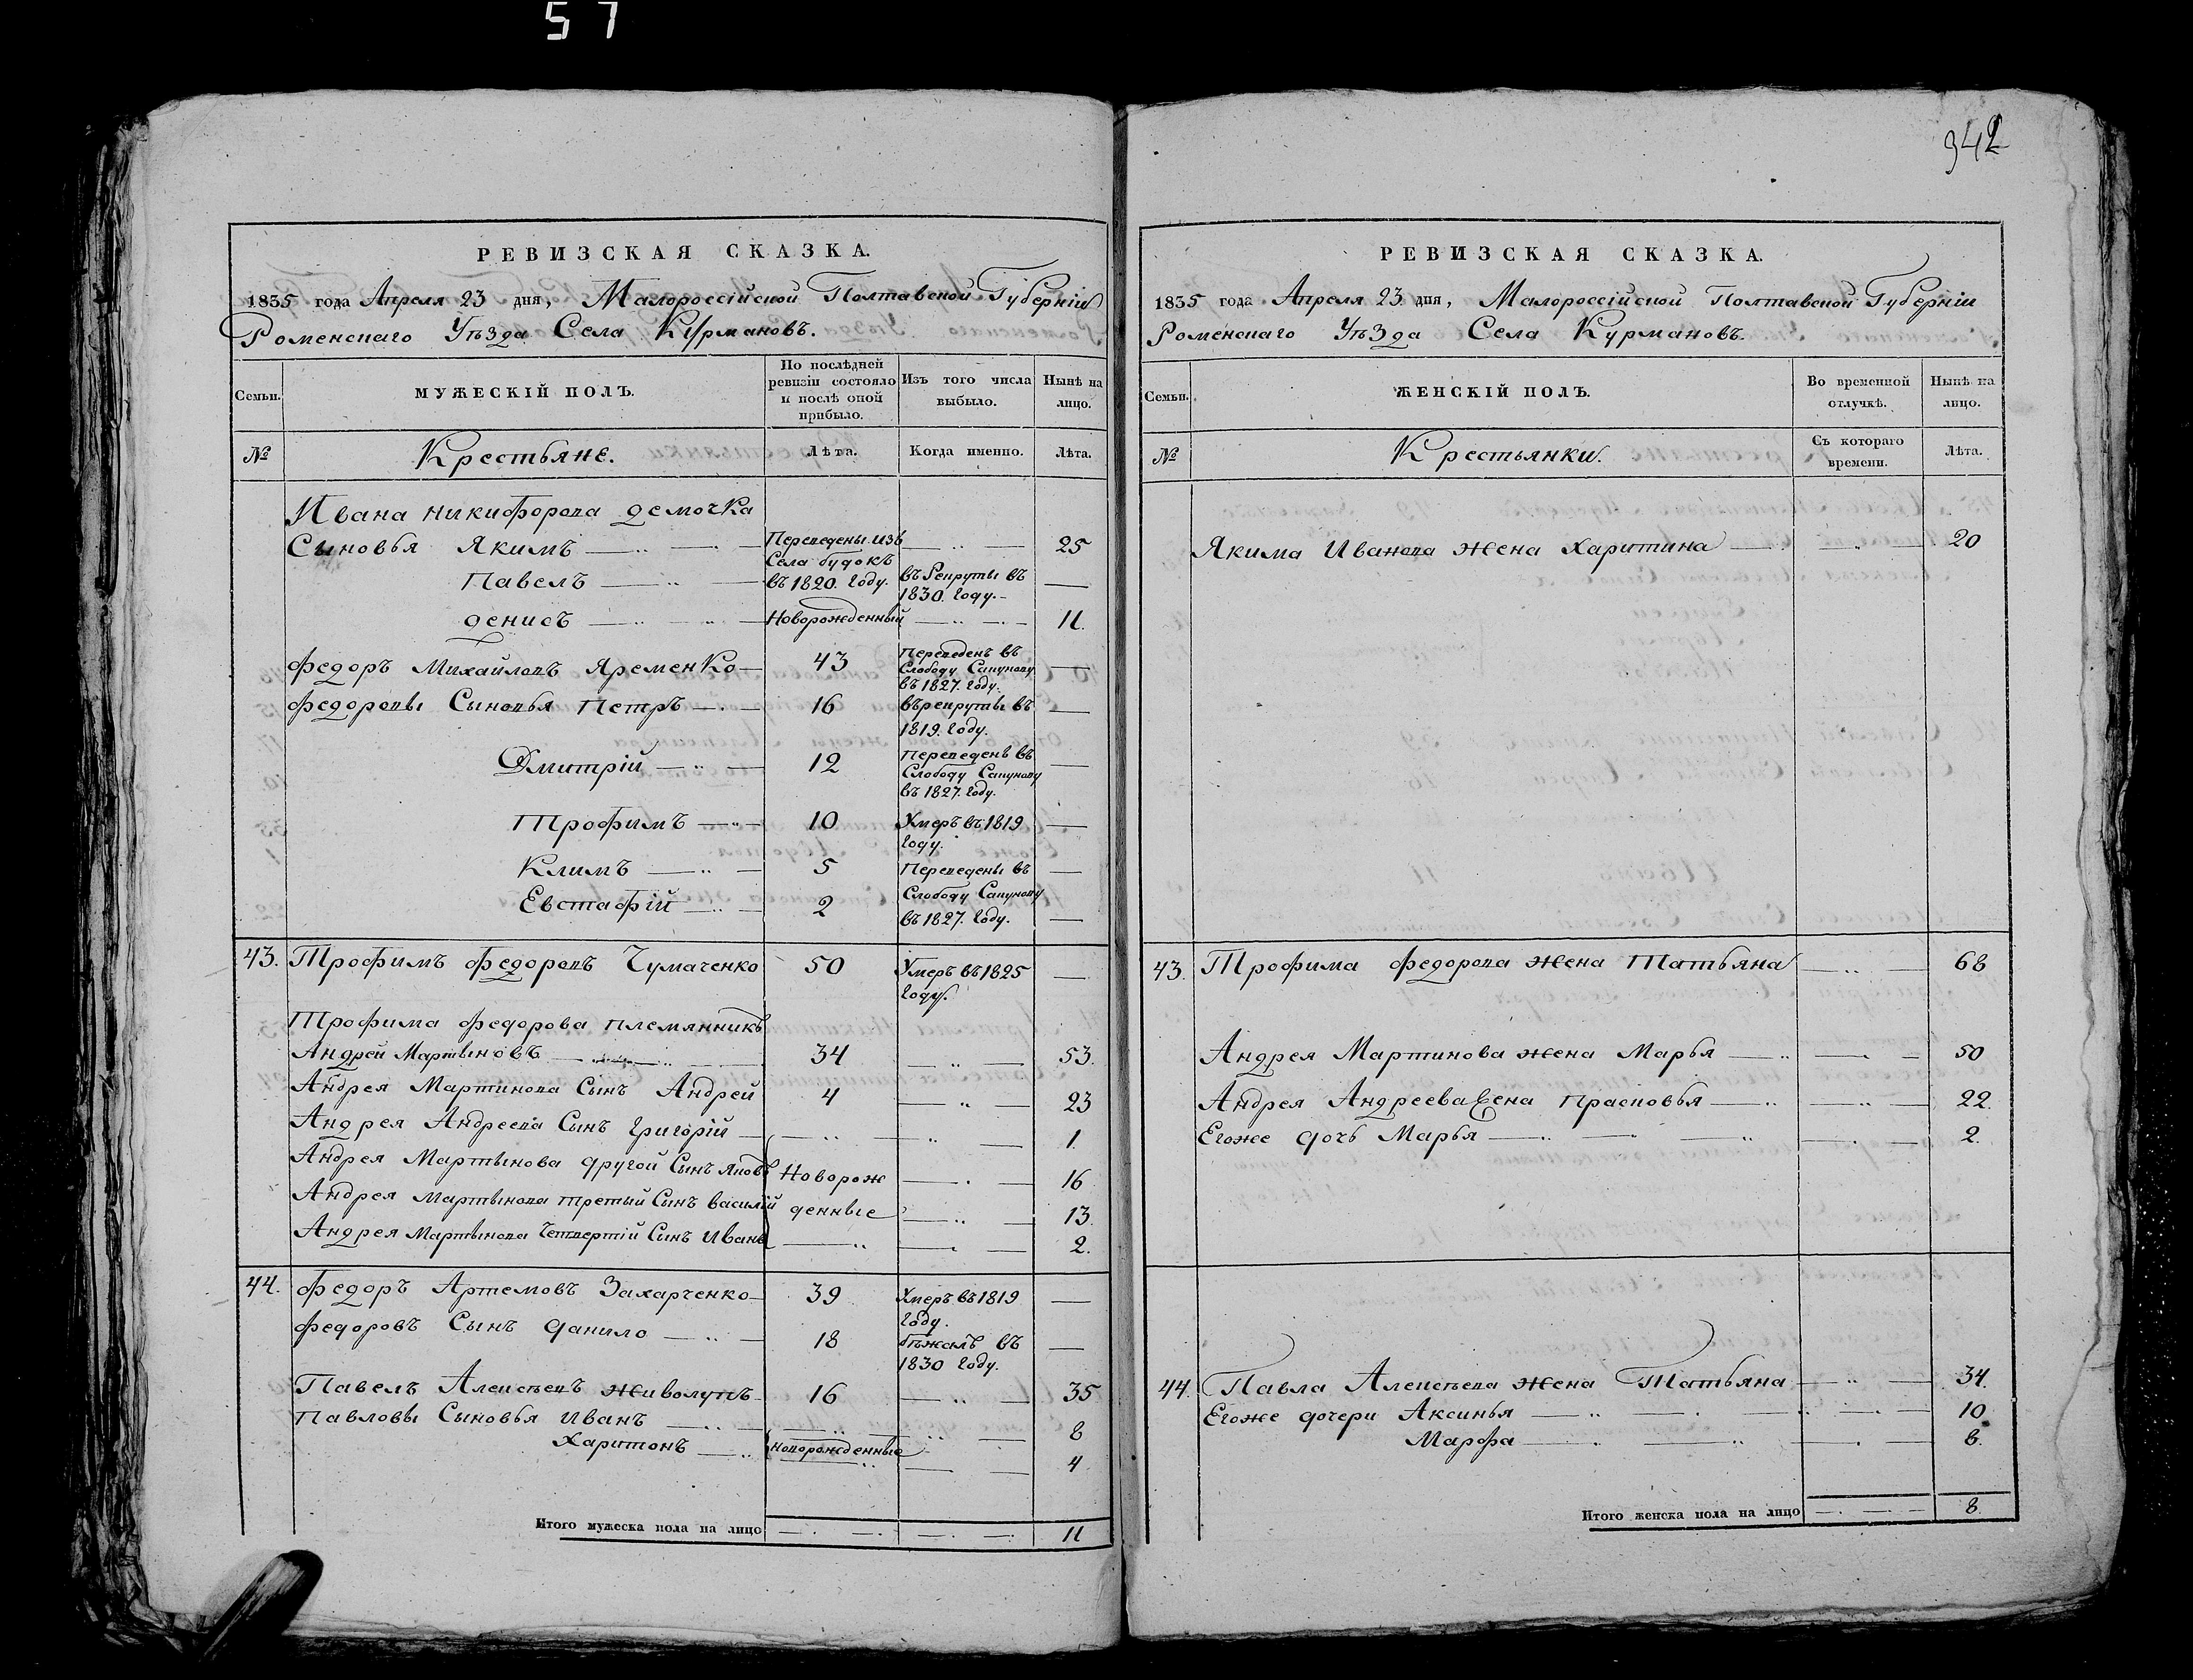 57
942
РЕВИЗСКАЯ СКАЗКА.
1835 года Апреля 23 дня, Малороссійской Полтавской Губерніи
Роменскаго Уѣзда Села Курмановъ.
Семьи.
МУЖЕСКІЙ ПОЛЪ.
По послѣдней ревизіи состояло и послѣ оной прибыло.
Изъ того числа выбыло.
Нынѣ на лицо.
№
Крестьяне.
Лѣта.
Когда именно.
Лѣта.
Ивана Никифорова Демочка
Сыновья Якимъ — Переведены изъ Села Будокъ — 25
Павелъ — въ 1820. году. въ Рекруты въ 1830. году. —
Денисъ — Новорожденный — 11.
Федоръ Михайловъ Яременко — 43 Переведенъ въ Слободу Сапунову въ 1827. году. —
Федоровы Сыновья Петръ — 16 въ рекруты въ 1819. году. —
Дмитрій — 12 Переведенъ въ Слободу Сапунову въ 1827. году. —
Трофимъ — 10 Умеръ въ 1819 году. —
Климъ — 5 Переведены въ —
Евстафій — 2 Слободу Сапунову въ 1827. году. —
43. Трофимъ Федоровъ Чумаченко 50 Умеръ въ 1825 году. —
Трофима Федорова племянникъ
Андрей Мартыновъ — 34 — 53.
Андрея Мартинова Сынъ Андрей 4 — 23
Андрея Андреева Сынъ Григорій — 1.
Андрея Мартынова другой Сынъ Яковъ Новорож — 16
Андрея Мартынова третьій Сынъ Василій денные — 13.
Андрея Мартынова Четвертій Сынъ Иванъ — 2.
44. Федоръ Артемовъ Захарченко — 39 Умеръ въ 1819 году. —
Федоровъ Сынъ Данило — 18 бѣжалъ въ 1830 году. —
Павелъ Алексѣевъ Живолупъ 16 — 35
Павловы Сыновья Иванъ — 8
Харитонъ — новорожденные — 4
Итого мужеска пола на лицо — 11
РЕВИЗСКАЯ СКАЗКА.
1835 года Апреля 23 дня, Малороссійской Полтавской Губерніи
Роменскаго Уѣзда Села Курмановъ.
Семьи.
ЖЕНСКІЙ ПОЛЪ.
Во временной отлучкѣ.
Нынѣ на лицо.
№
Крестьянки.
Съ котораго времени.
Лѣта.
Якима Иванова жена Харитина — 20
43. Трофима Федорова жена Татьяна — 68
Андрея Мартинова жена Марья — 50
Андрея Андреева жена Прасковья — 22.
Егоже дочь Марья — 2.
44. Павла Алексѣева жена Татьяна — 34.
Егоже дочери Аксинья — 10
Марфа — 8.
Итого женска пола на лицо — 8.